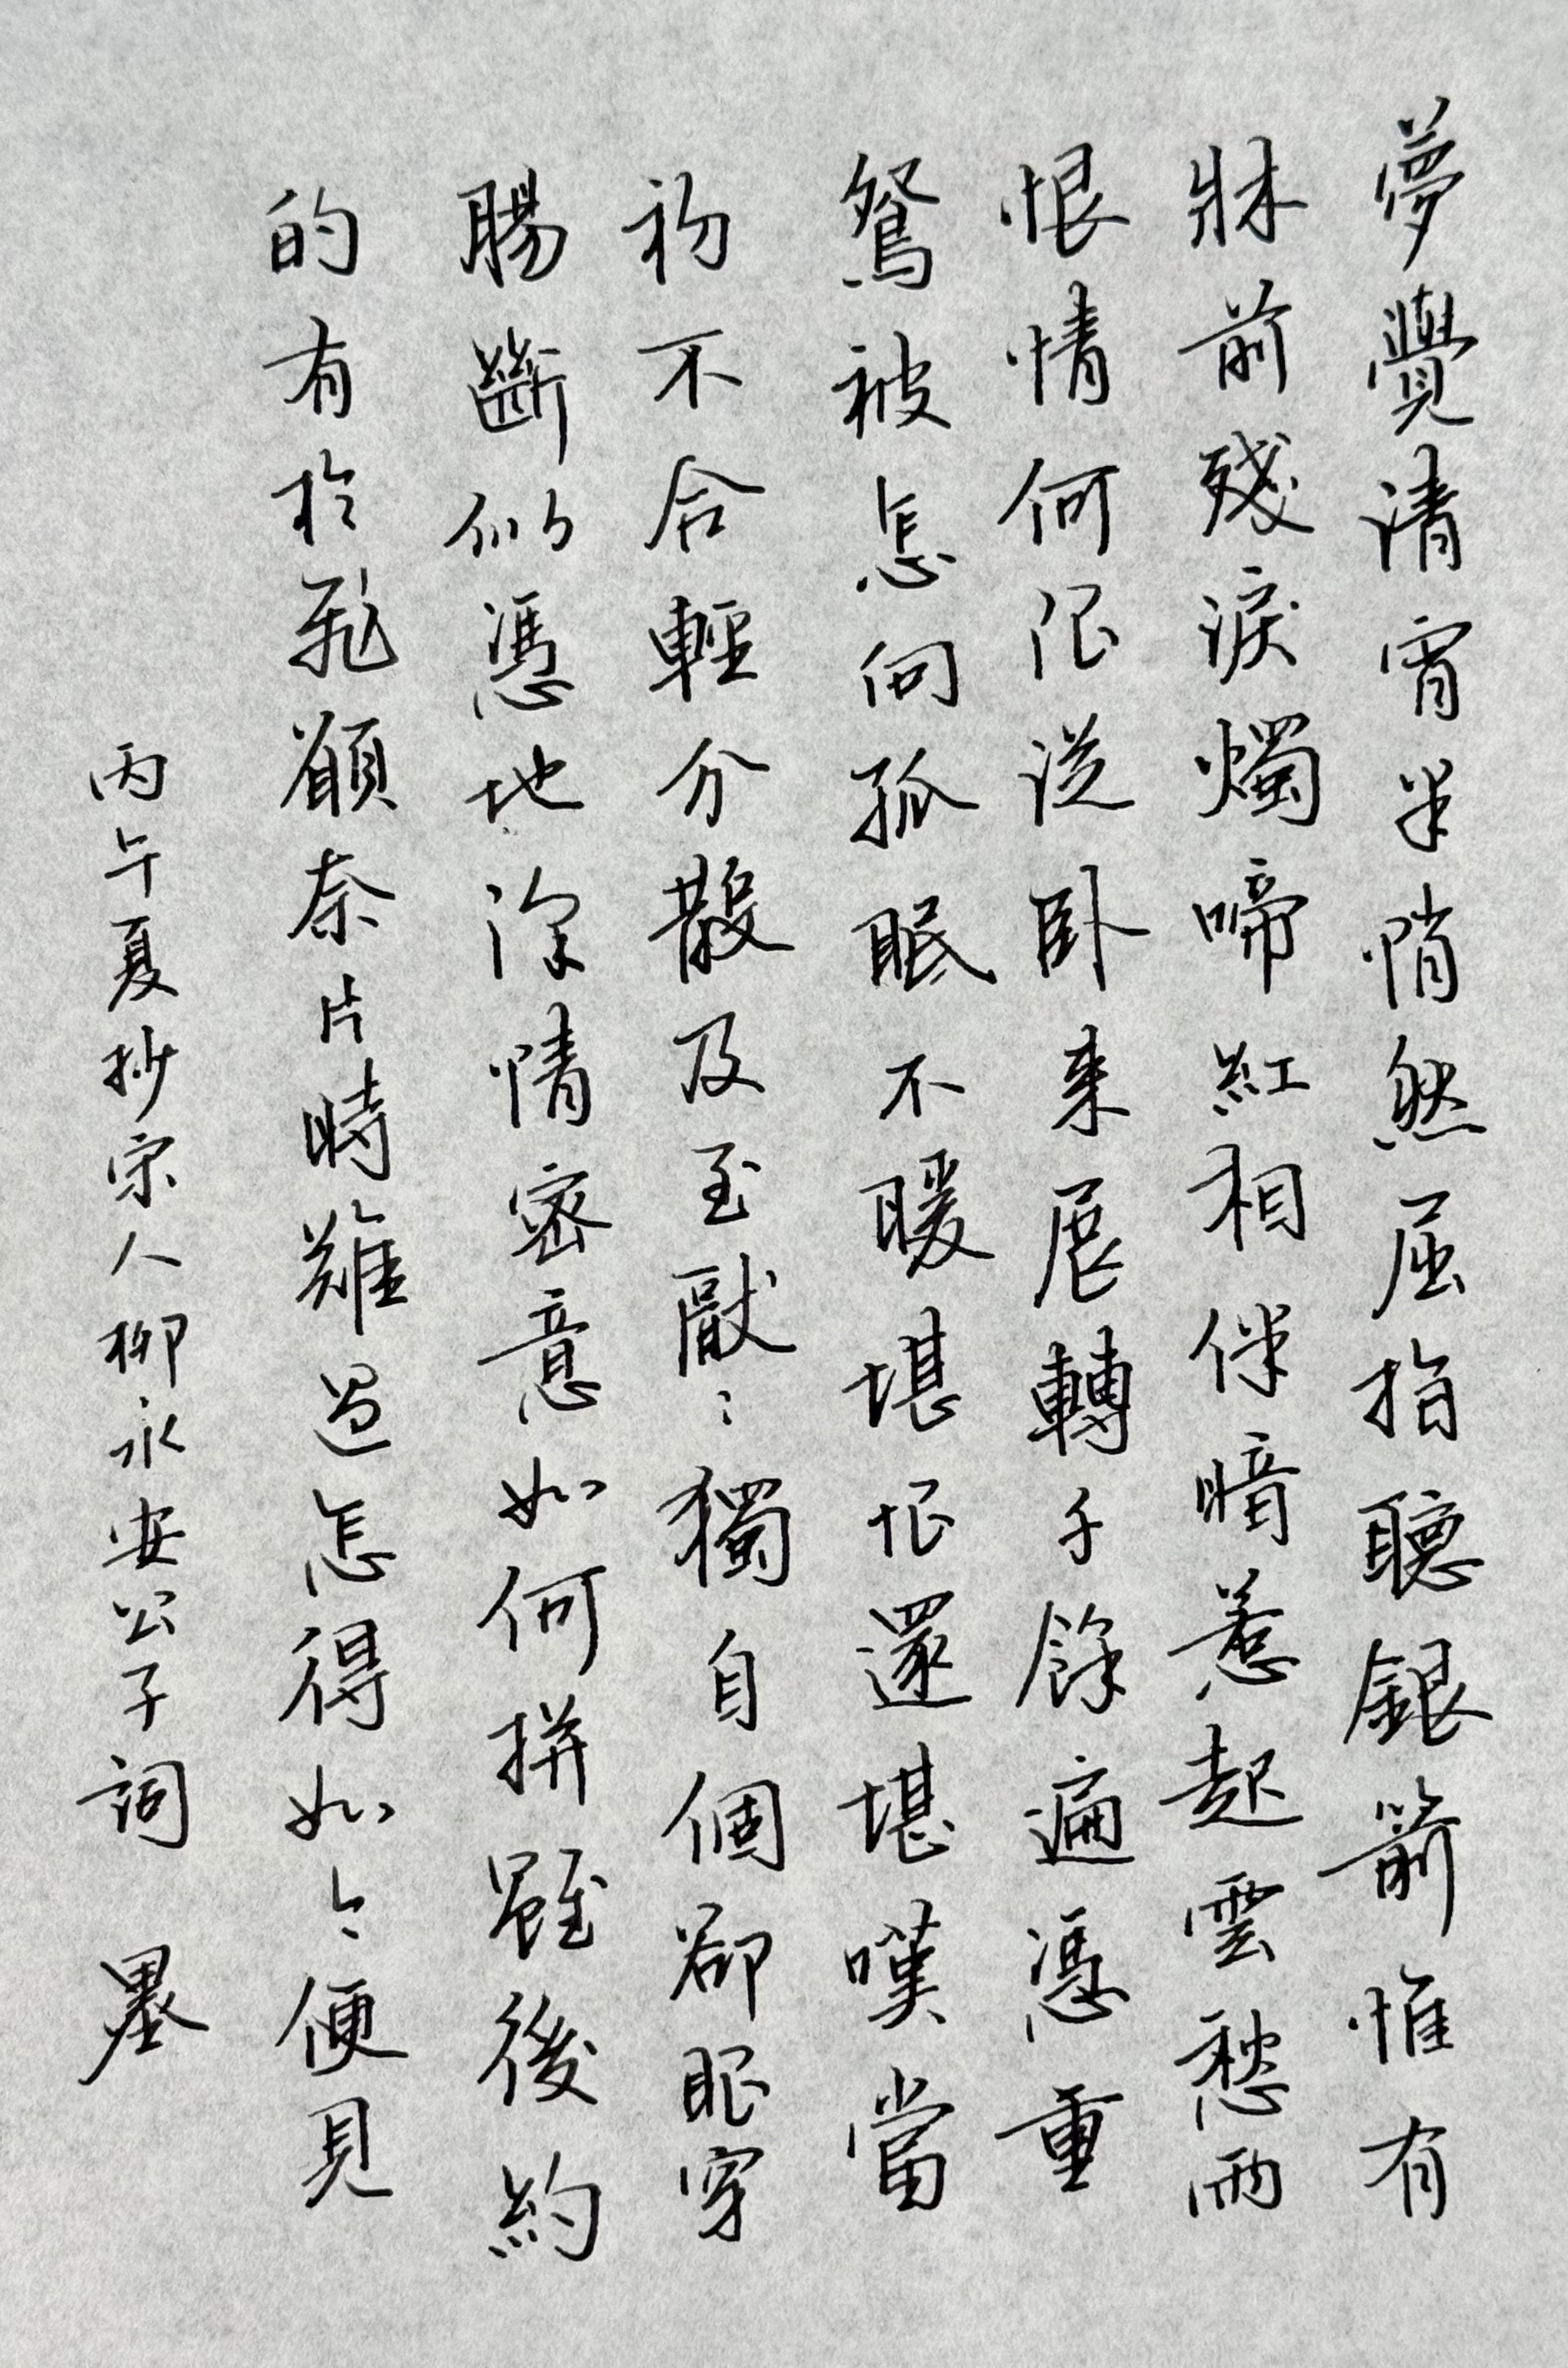 夢覺清宵半悄然屈指聽銀箭惟有
牀前殘淚燭啼紅相伴暗惹起雲愁雨
恨情何限從卧來展轉千餘遍憑重
鴛被怎向孤眠不暖堪恨還堪嘆當
初不合輕分散及至厭々獨自個卻眼穿
腸斷似憑地深情密意如何拼雖後約
的有於飛願奈片時難過怎得如今便見
丙午夏抄宋人柳永安公子詞 墨